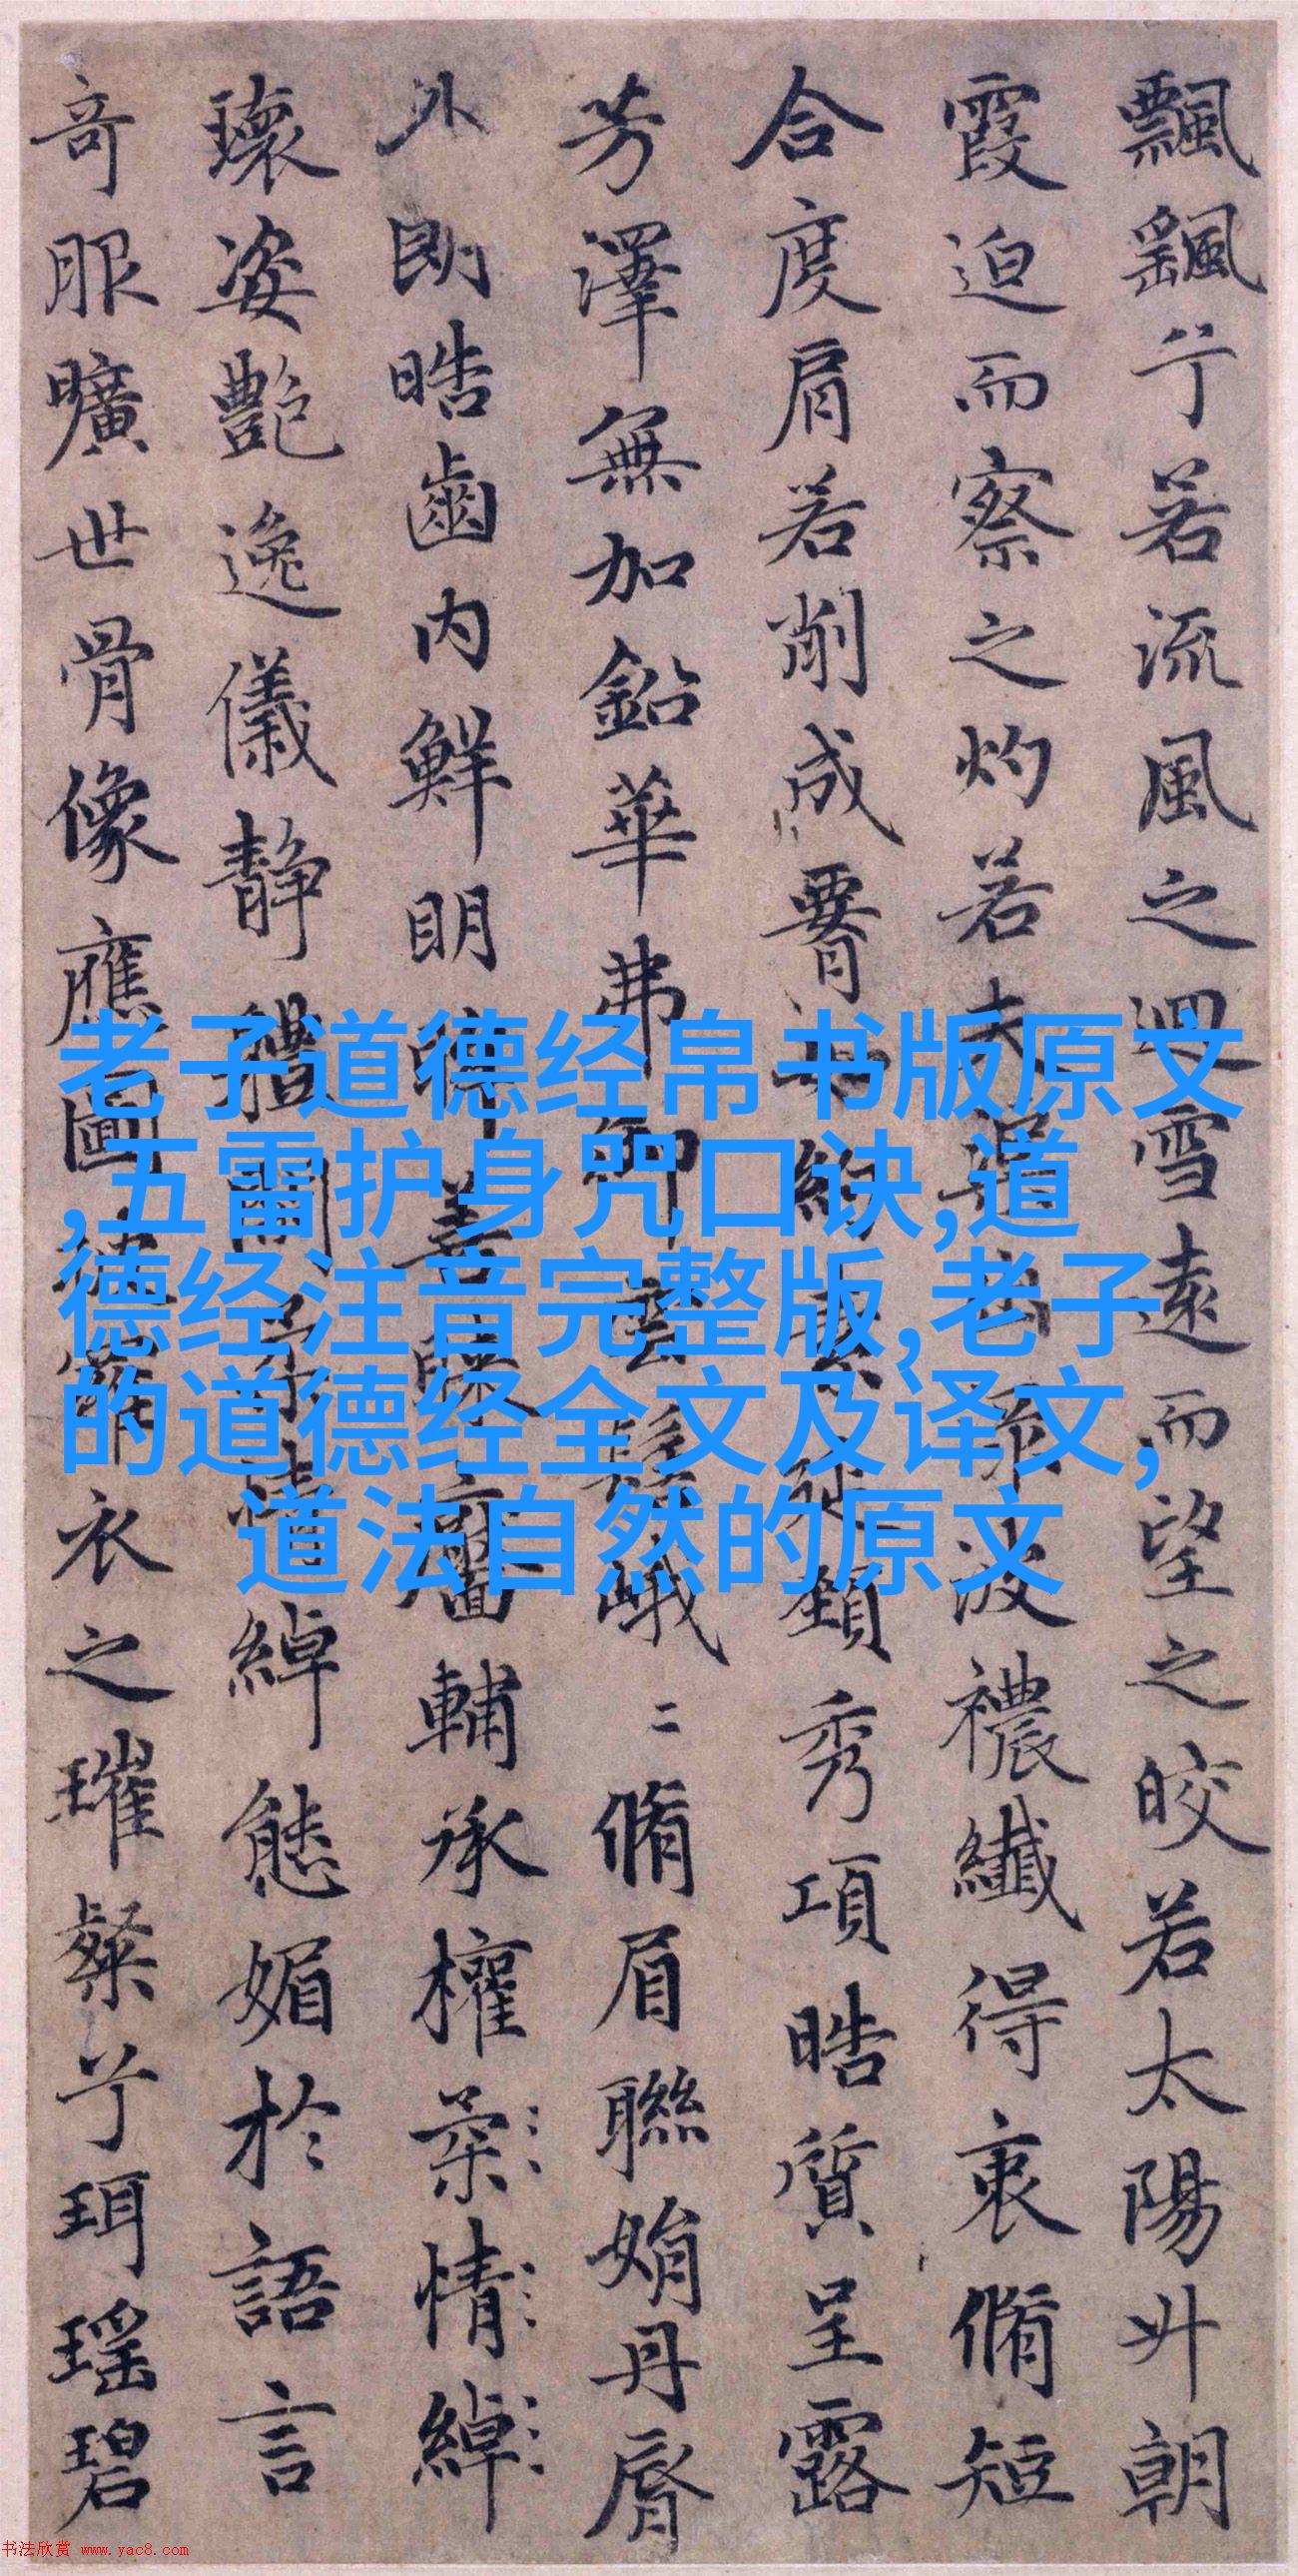 飄飖兮若流風之迴雪遠而望之皎若太陽升朝
霞迫而察之灼若夫渠出淥波襛纖得衷脩短
合度肩若削成腰如約素延頸秀項晧質呈露
芳澤無加鉛華弗御雲髻峨二脩眉聯娟丹脣
外朗晧齒内鮮明眸善睞靨輔承權柔情綽
瓌姿艶逸儀静體閑柔情綽態媚於語言
奇服曠世骨像應圖披羅衣之璀粲兮珥瑶碧
老子道德经帛书版原文
,五雷护身咒口诀,道
德经注音完整版,老子
的道德经全文及译文,
道法自然的原文
书法欣赏 www.yac8.com